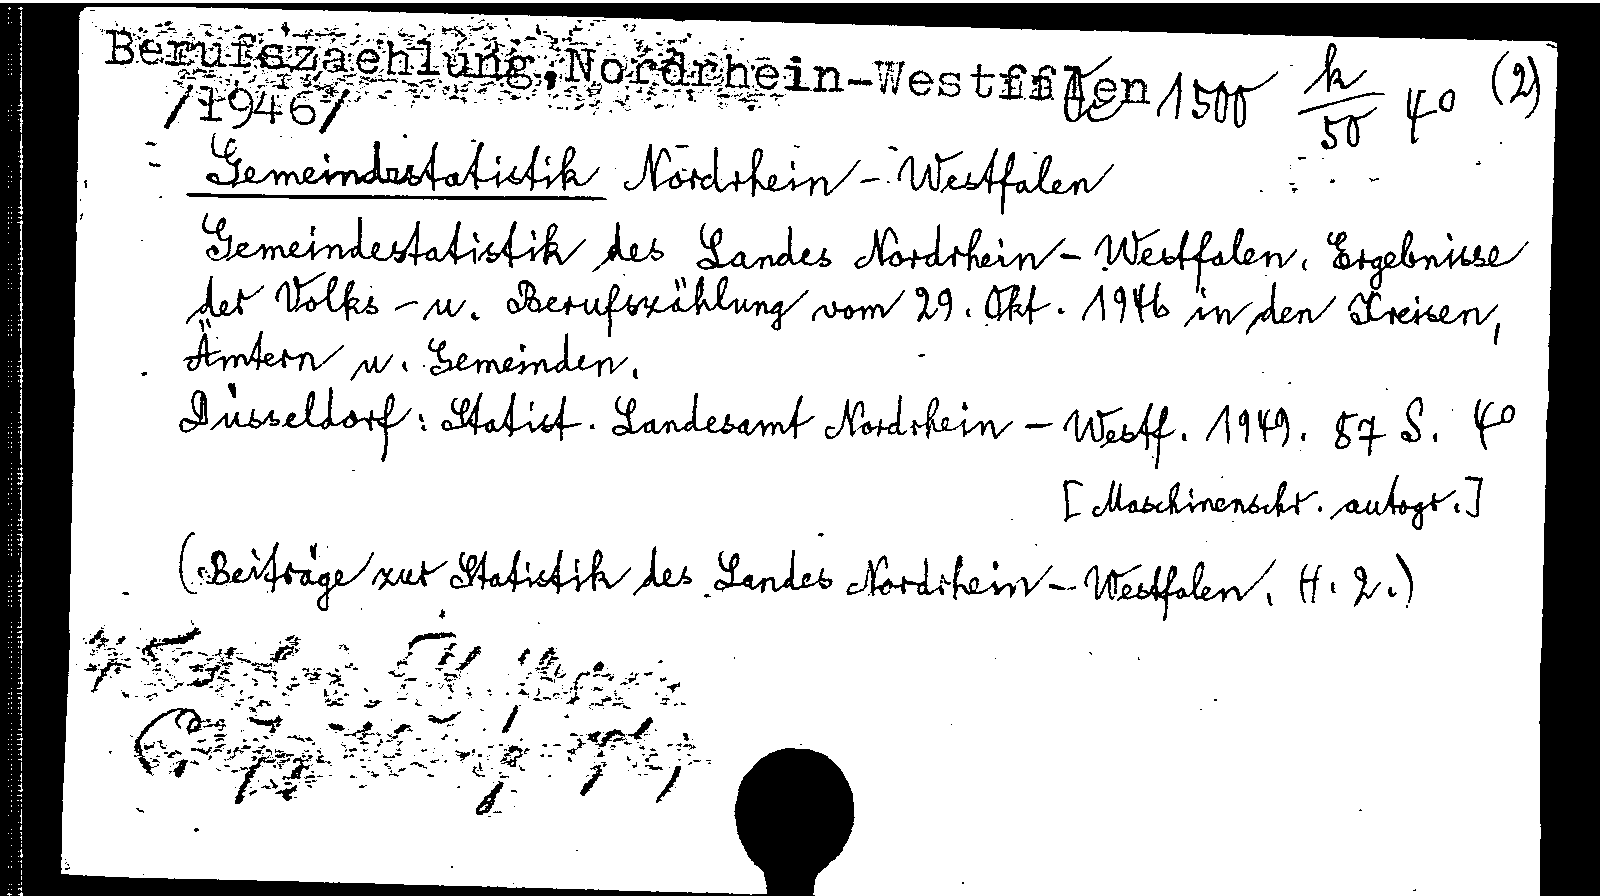 Berufszaehlung,Nordrhein-Westfalen 1500 k/50 4° (2)
/1946/
Gemeindestatistik Nordrhein-Westfalen
Gemeindestatistik des Landes Nordrhein-Westfalen. Ergebnisse
der Volks-u. Berufszählung vom 29. Okt. 1946 in den Kreisen,
Ämtern u. Gemeinden.
Düsseldorf: Statist. Landesamt Nordrhein-Westf. 1949. 87 S. 4°
[Maschinenschr. autogr.]
(Beiträge zur Statistik des Landes Nordrhein-Westfalen. H. 2.)